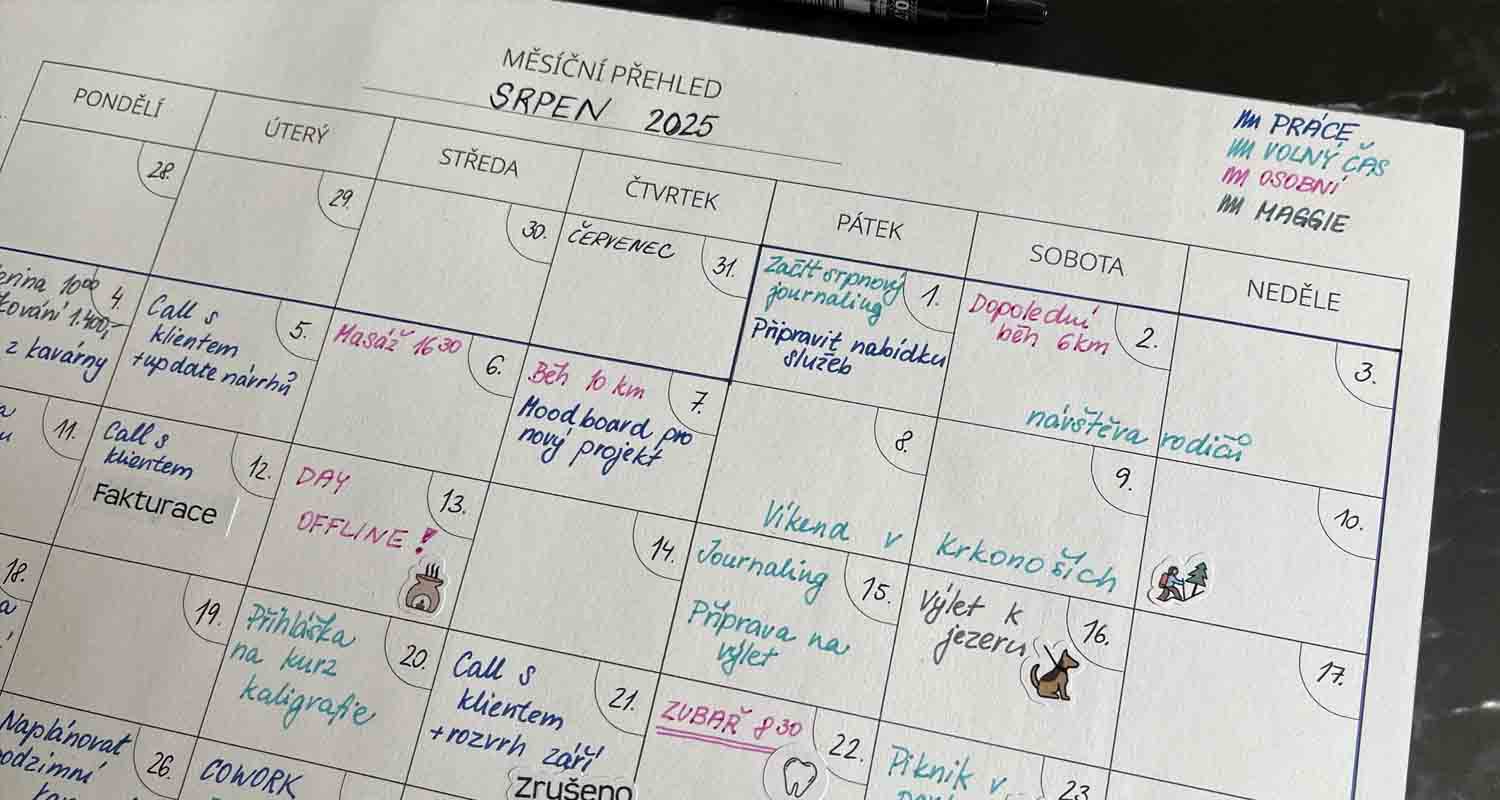 MĚSÍČNÍ PŘEHLED
SRPEN 2025
PRÁCE
VOLNÝ ČAS
OSOBNÍ
MAGGIE
PONDĚLÍ
ÚTERÝ
STŘEDA
ČTVRTEK
PÁTEK
SOBOTA
NEDĚLE
28.
29.
30.
ČERVENEC 31.
Začít srpnový
journaling
1.
Připravit nabídku
služeb
Dopolední
běh 6km
2.
3.
návštěva rodičů
1000
4.
1.400,-
z kavárny
Call s
klientem
+update návrhů
5.
Masáž 1630
6.
Běh 10 km
7.
Moodboard pro
nový projekt
8.
Víkend v Krkonoších
9.
10.
11.
Call s
klientem
12.
Fakturace
DAY
OFFLINE!
13.
14.
Journaling
15.
Příprava na
výlet
Výlet k
jezeru
16.
17.
18.
19.
Přihláška
na kurz
kaligrafie
20.
Call s
klientem
+rozvrh září
21.
Zrušeno
ZUBAŘ 830
22.
Piknik v
23.
Naplánovat
26.
COWORK